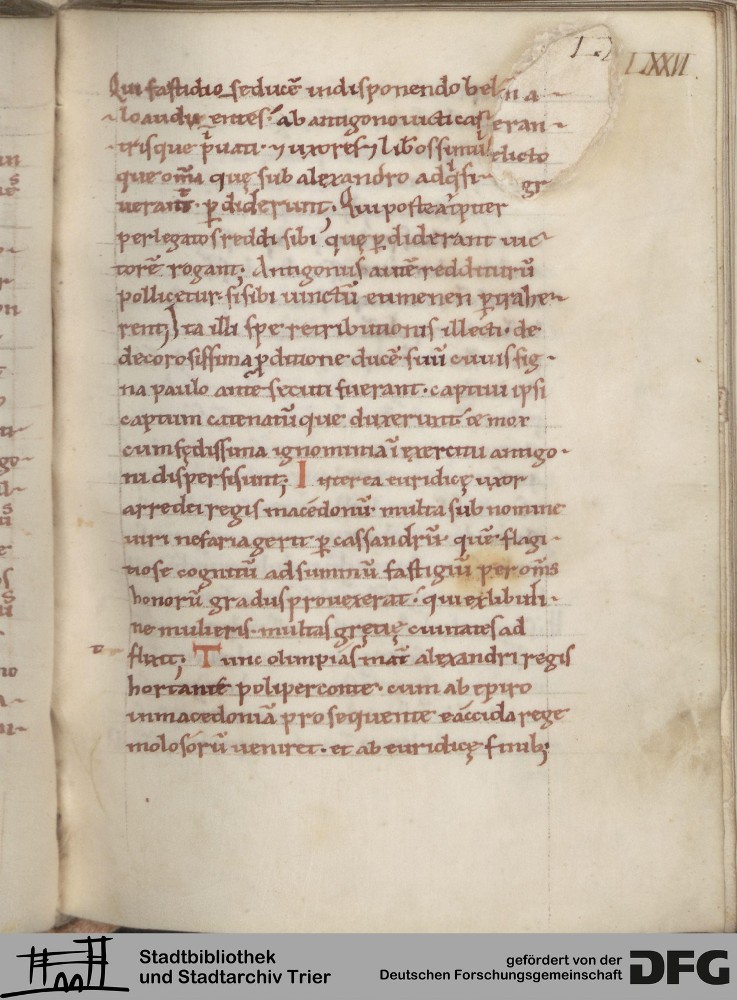 LXXVI
Qui fastidio seducē indisponendo bel na
lo audientes. ab antigono uicti cas eran
trisque p̄uati. ⁊ uxores ⁊ lib̄os simul elicto
que om̄ia quę sub alexandro adq̇si gr
uerant p̱diderunt; Qui postea
per legatos reddi sibi quę p̱diderant uic
torē rogant; Antigonus autē redditurū
pollicetur. si sibi uinctū eumenen p̱trahe
rent; Ita illi spe retributionis illecti. de
decorosissima p̱ditione ducē suū cuius sig
na paulo ante secuti fuerant. captiui ipsi
captum catenatūque duxerunt. et mox
cum fędissima ignominia ī exercitu antigo
ni dispersi sunt; Interea euridicę uxor
arredei regis macedonū multa sub nomine
uiri nefaria gerit p̱ cassandrū. quē flagi
tiose cognitū ad summū fastigiū per om̄s
honorū gradus prouexerat. qui ex libidi
ne mulieris. multas gręcię ciuitates ad
flixit; Tunc olimpias mat̄ alexandri regis
hortante poliperconte. cum ab epiro
in macedoniā prosequente eaccida rege
molosorū ueniret. et ab euridicę finib;
Stadtbibliothek
und Stadtarchiv Trier
gefördert von der
Deutschen Forschungsgemeinschaft
DFG